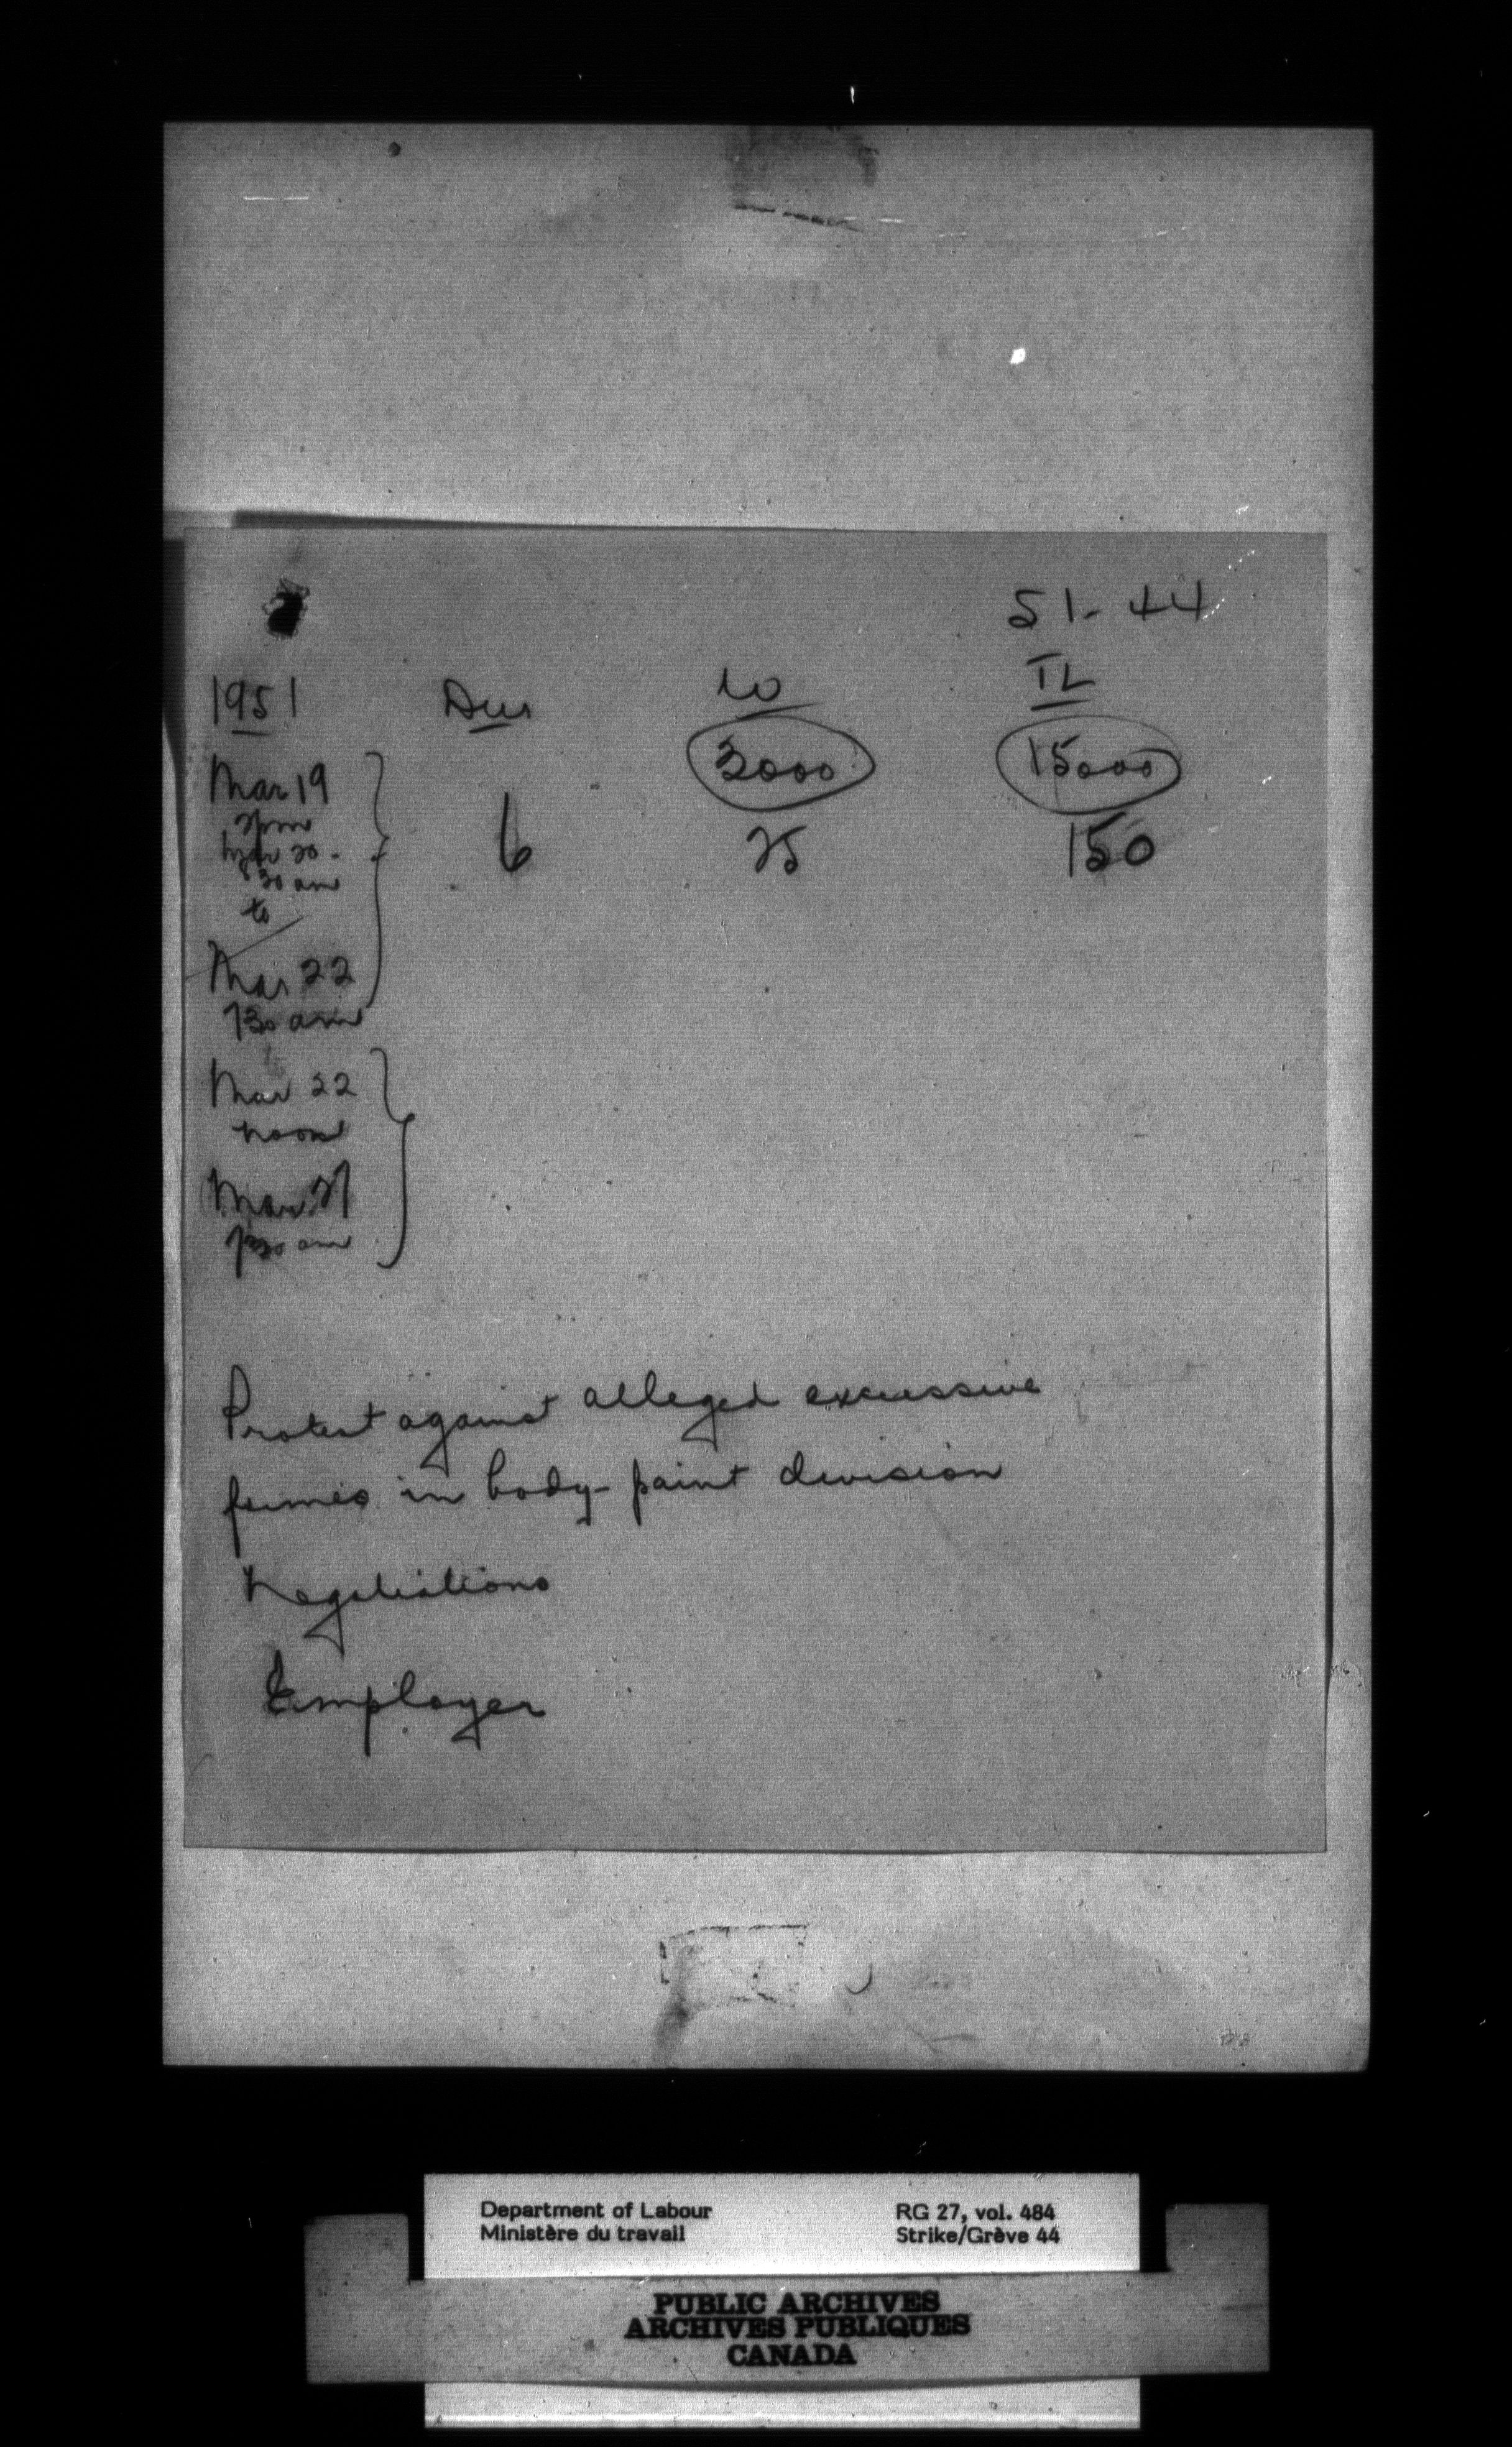 51-44
1951 Dur W TL
3000 15000
Mar 19
3pm
Mar 20 -
30 am
to
6 25 150
Mar 22
730 am
Mar 22
noon
Mar 27
730 am
Protest against alleged excessive
fumes in body-paint division
Negotiations
Employer
Department of Labour
Ministère du travail
RG 27, vol. 484
Strike/Grève 44
PUBLIC ARCHIVES
ARCHIVES PUBLIQUES
CANADA